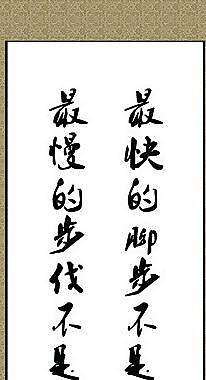 最快的脚步不是
最慢的步伐不是